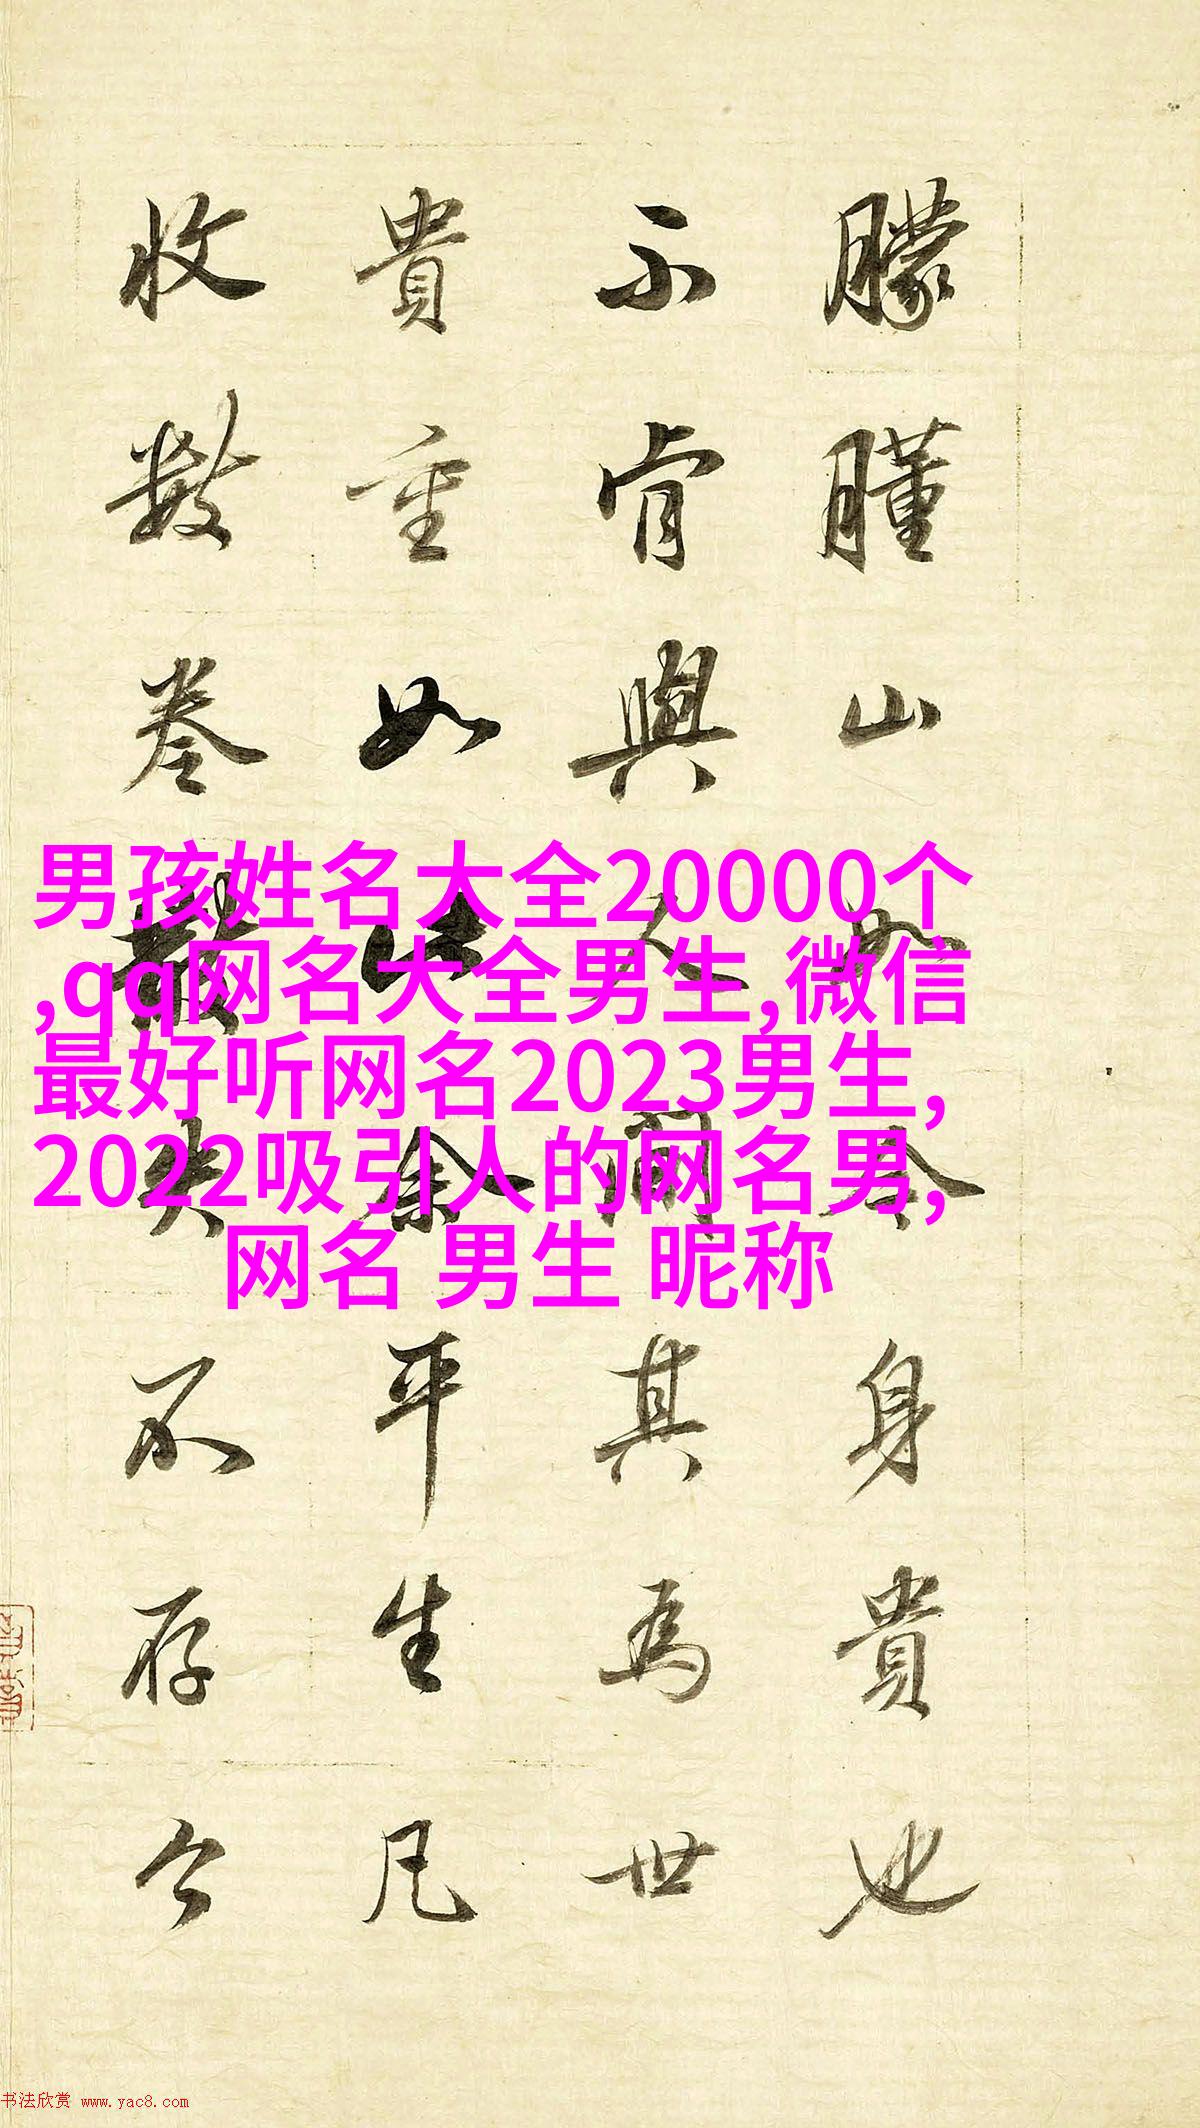 朦山如身貴也
不肯與人間其爲世
貴重如此余平生凡
收數卷散失不存今
男孩姓名大全20000个
,qq网名大全男生,微信
最好听网名2023男生,
2022吸引人的网名男,
网名 男生 昵称
书法欣赏 www.yac8.com